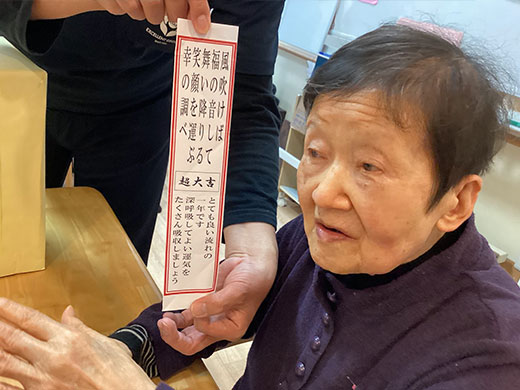 風吹けば
福の音して
舞い降りる
笑顔を運ぶ
幸の調べ
超大吉
とても良い流れの
一年です
深呼吸してよい運気を
たくさん吸収しましょう